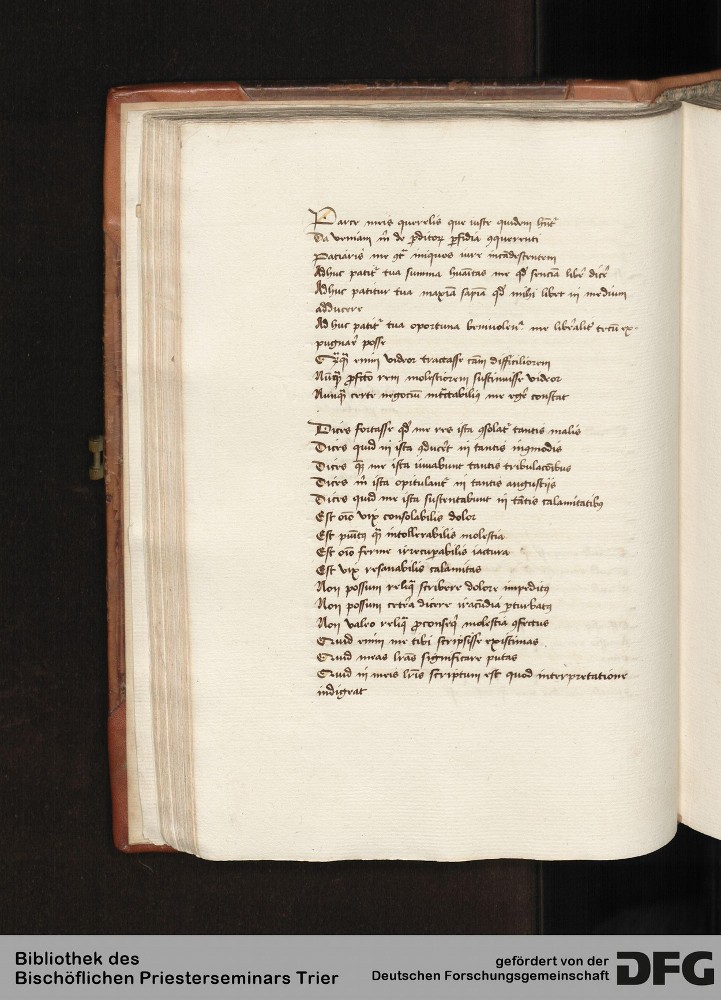 Parce meis querelis que iuste quidem hn̄t᷑
Da veniam m̄ de ꝓditoꝝ ꝑfidia ꝯquerenti
Paciaris me ꝯt᷑ iniquos iure incādescentem
Adhuc patit᷑ tua summa hūaitas me qd̄ senciā libe᷑ dic̄e
Adhuc patitur tua maxīa sapīa qd̄ mihi libet in medium
adducere
Adhuc patit᷑ tua oportuna beniuolen᷑ me lib̄alit᷑ tecū ex-
pugnar̄ posse
enim videor tractasse cām difficiliorem
Nūq̄ ꝓfc̄to rem molestiorem sustinuisse videor
Nunq̄ certe negociū me eḡe constat
Dices fortasse qd̄ me res ista ꝯsolat᷑ tantis malis
Dices quid in ista ꝯduc̄et in tantis inꝯmodis
Dices q̄ me ista iuuabunt tantis tribulac̄oibus
Dices m̄ ista opitulant᷑ in tantis angustijs
Dices quid me ista sustentabunt in tātis calamitatibꝰ
Est oīo vix consolabilis dolor
Est q̄ intollerabilis molestia
Est oīo ferme irrecuꝑabilis iactura
Est vix resanabilis calamitas
Non possum reliq̄ scribere dolore impeditꝰ
Non possum cet̄a dicere iracūdia ꝑturbatꝰ
Non valeo reliq̄ ꝓconseq̄ molestia ꝯfectus
Quid enim me tibi scripsisse existimas
Quid meas lr̄as significare putas
Quid in meis lr̄is scriptum est quod interpretatione
indigeat
Bibliothek des
Bischöflichen Priesterseminars Trier
gefördert von der
Deutschen Forschungsgemeinschaft
DFG